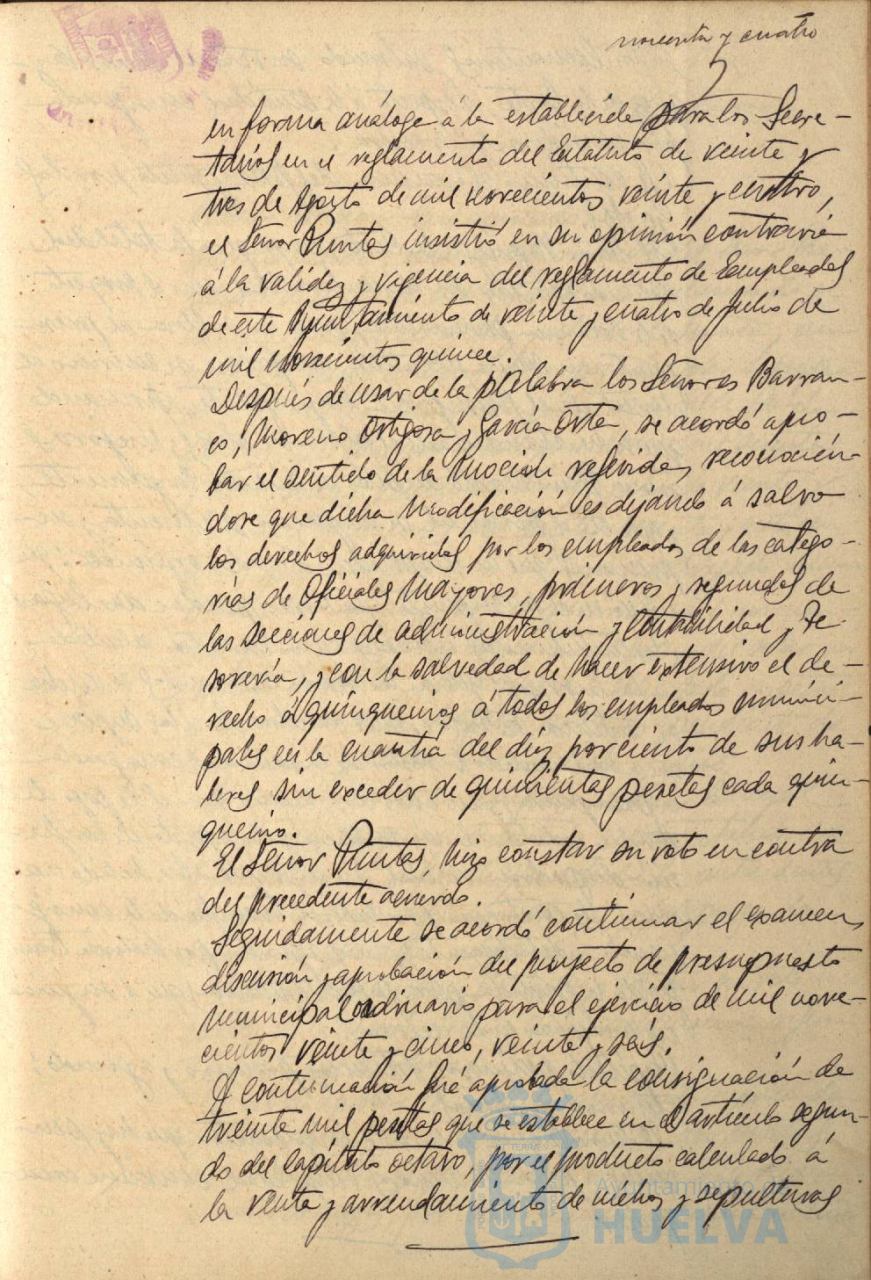 noventa y cuatro
en forma análoga á la establecida para los Secre-
tarios en el reglamento del Estatuto de veinte y
tres de Agosto de mil novecientos veinte y cuatro,
el Señor Puntas insistió en su opinión contraria
á la validez y vigencia del reglamento de Empleados
de este Ayuntamiento de veinte y cuatro de Julio de
mil novecientos quince.
Después de usar de la palabra los Señores Barran-
co, Moreno Ortigosa y García Orta, se acordó apro-
bar el sentido de la moción referida, reconocién-
dose que dicha modificación es dejando á salvo
los derechos adquiridos por los empleados de las catego-
rías de Oficiales Mayores, primeros y segundos de
las secciones de administración y Contabilidad y Te
sorería, y con la salvedad de hacer extensivo el de-
recho á quinquenios á todos los empleados munici-
pales en la cuantía del diez por ciento de sus ha-
beres sin exceder de quinientas pesetas cada quin-
quenio.
El Señor Puntas, hizo constar su voto en contra
del precedente acuerdo.
Seguidamente se acordó continuar el examen,
discusión y aprobación del proyecto de presupuesto
municipal ordinario para el ejercicio de mil nove-
cientos veinte y cinco, veinte y seis.
A continuación fué aprobada la consignación de
treinta mil pesetas que se establece en el artículo segun-
do del capítulo octavo, por el producto calculado á
la venta y arrendamiento de nichos y sepulturas
Ayuntamiento de
HUELVA